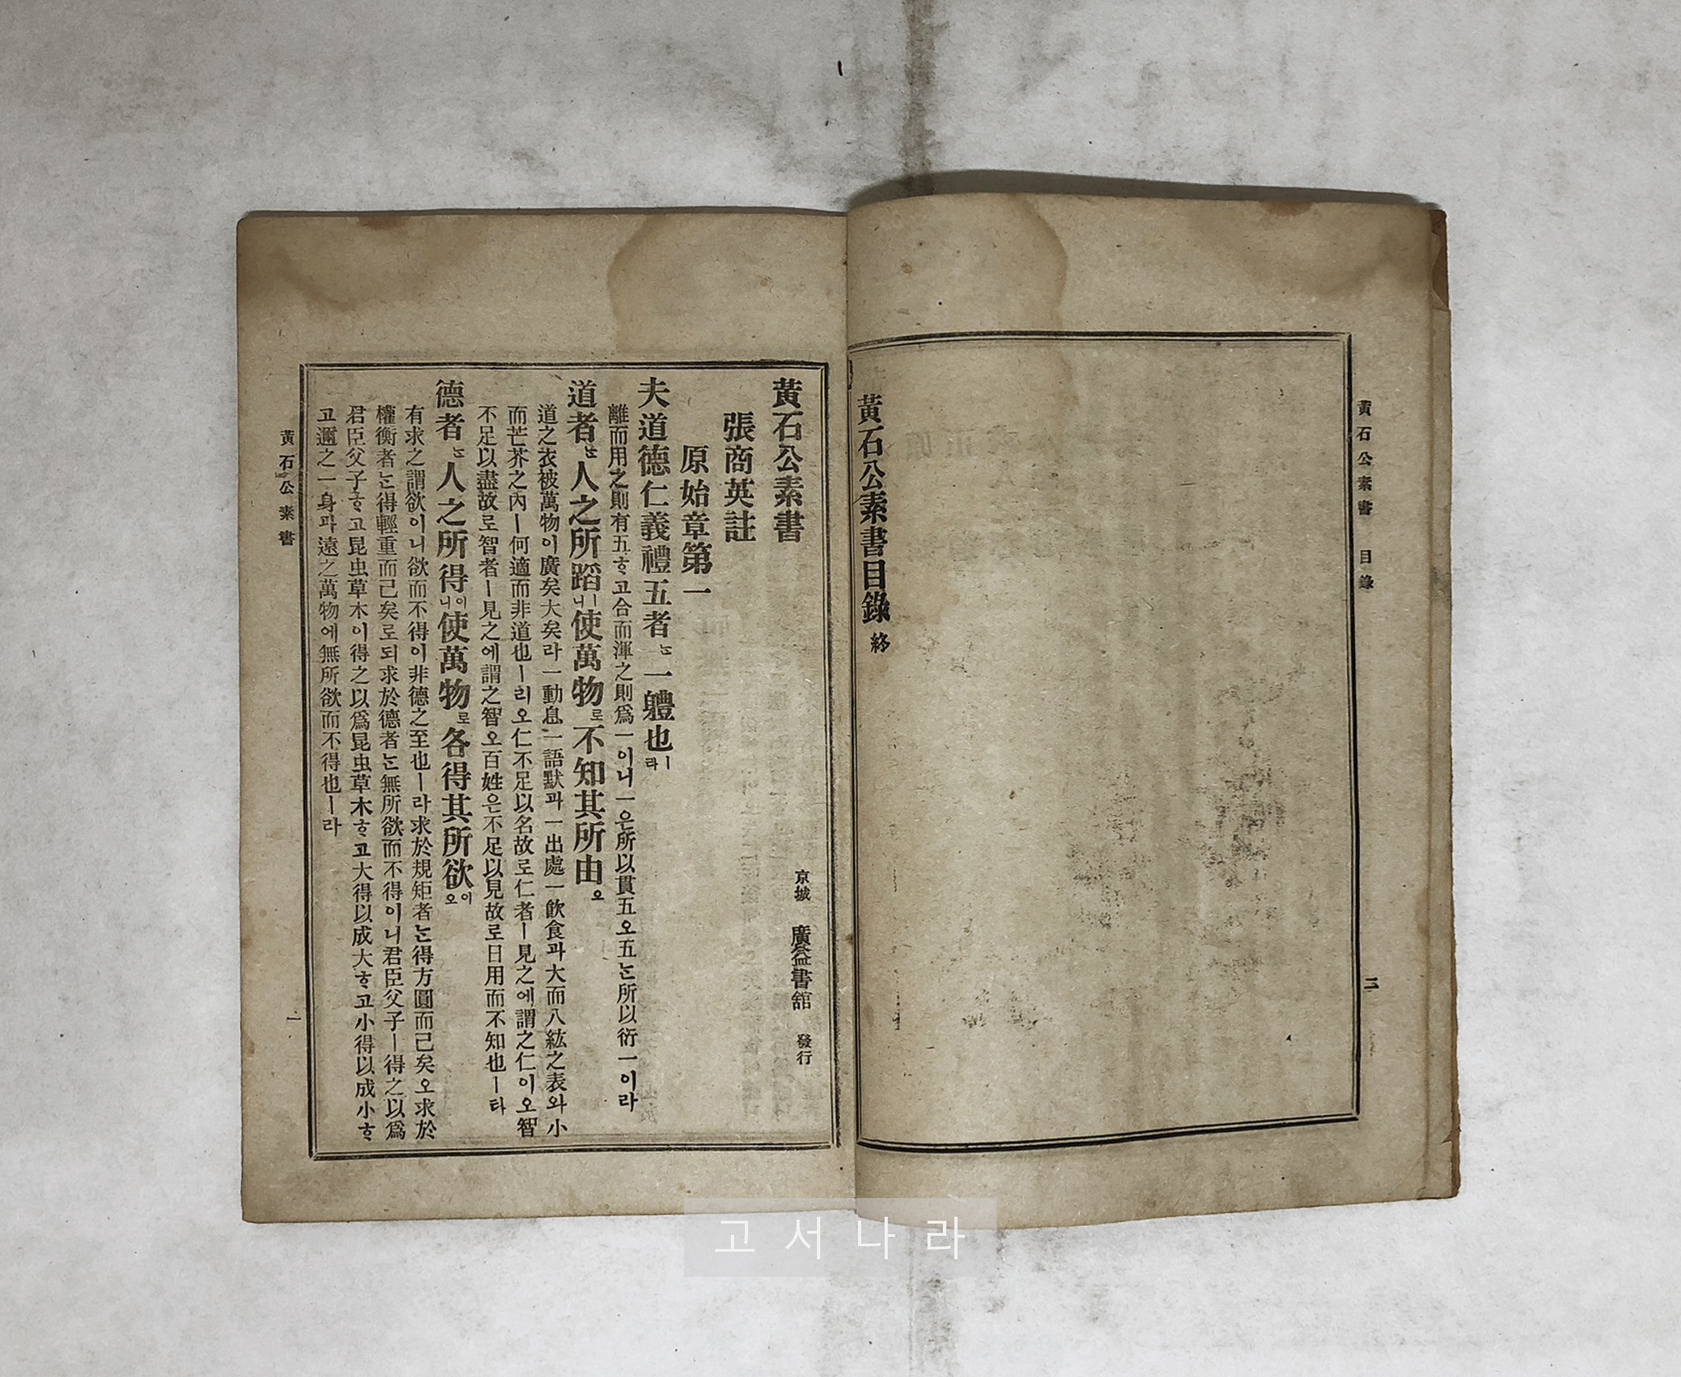 黃石公素書 目錄
二
黃石公素書目錄 終
黃石公素書
京城 廣益書舘 發行
張商英註
原始章第一
夫道德仁義禮五者ᄂᆞᆫ 一軆也ㅣ라
離而用之則有五ᄒᆞ고合而渾之則爲一이니一은所以貫五오五ᄂᆞᆫ所以衍一이라
道者ᄂᆞᆫ 人之所蹈ㅣ니使萬物로 不知其所由오
道之衣被萬物이廣矣大矣라一動息一語默과一出處一飮食과大而八紘之表와小
而芒芥之內ㅣ何適而非道也ㅣ리오仁不足以名故로仁者ㅣ見之에謂之仁이오智
不足以盡故로智者ㅣ見之에謂之智오百姓은不足以見故로日用而不知也ㅣ라
德者ᄂᆞᆫ 人之所得이니使萬物로 各得其所欲이오
有求之謂欲이니欲而不得이非德之至也ㅣ라求於規矩者ᄂᆞᆫ得方圓而已矣오求於
權衡者ᄂᆞᆫ得輕重而已矣로되求於德者ᄂᆞᆫ無所欲而不得이니君臣父子ㅣ得之以爲
君臣父子ᄒᆞ고昆虫草木이得之以爲昆虫草木ᄒᆞ고大得以成大ᄒᆞ고小得以成小ᄒᆞ
고邇之一身과遠之萬物에無所欲而不得也ㅣ라
黃石公素書
一
고서나라